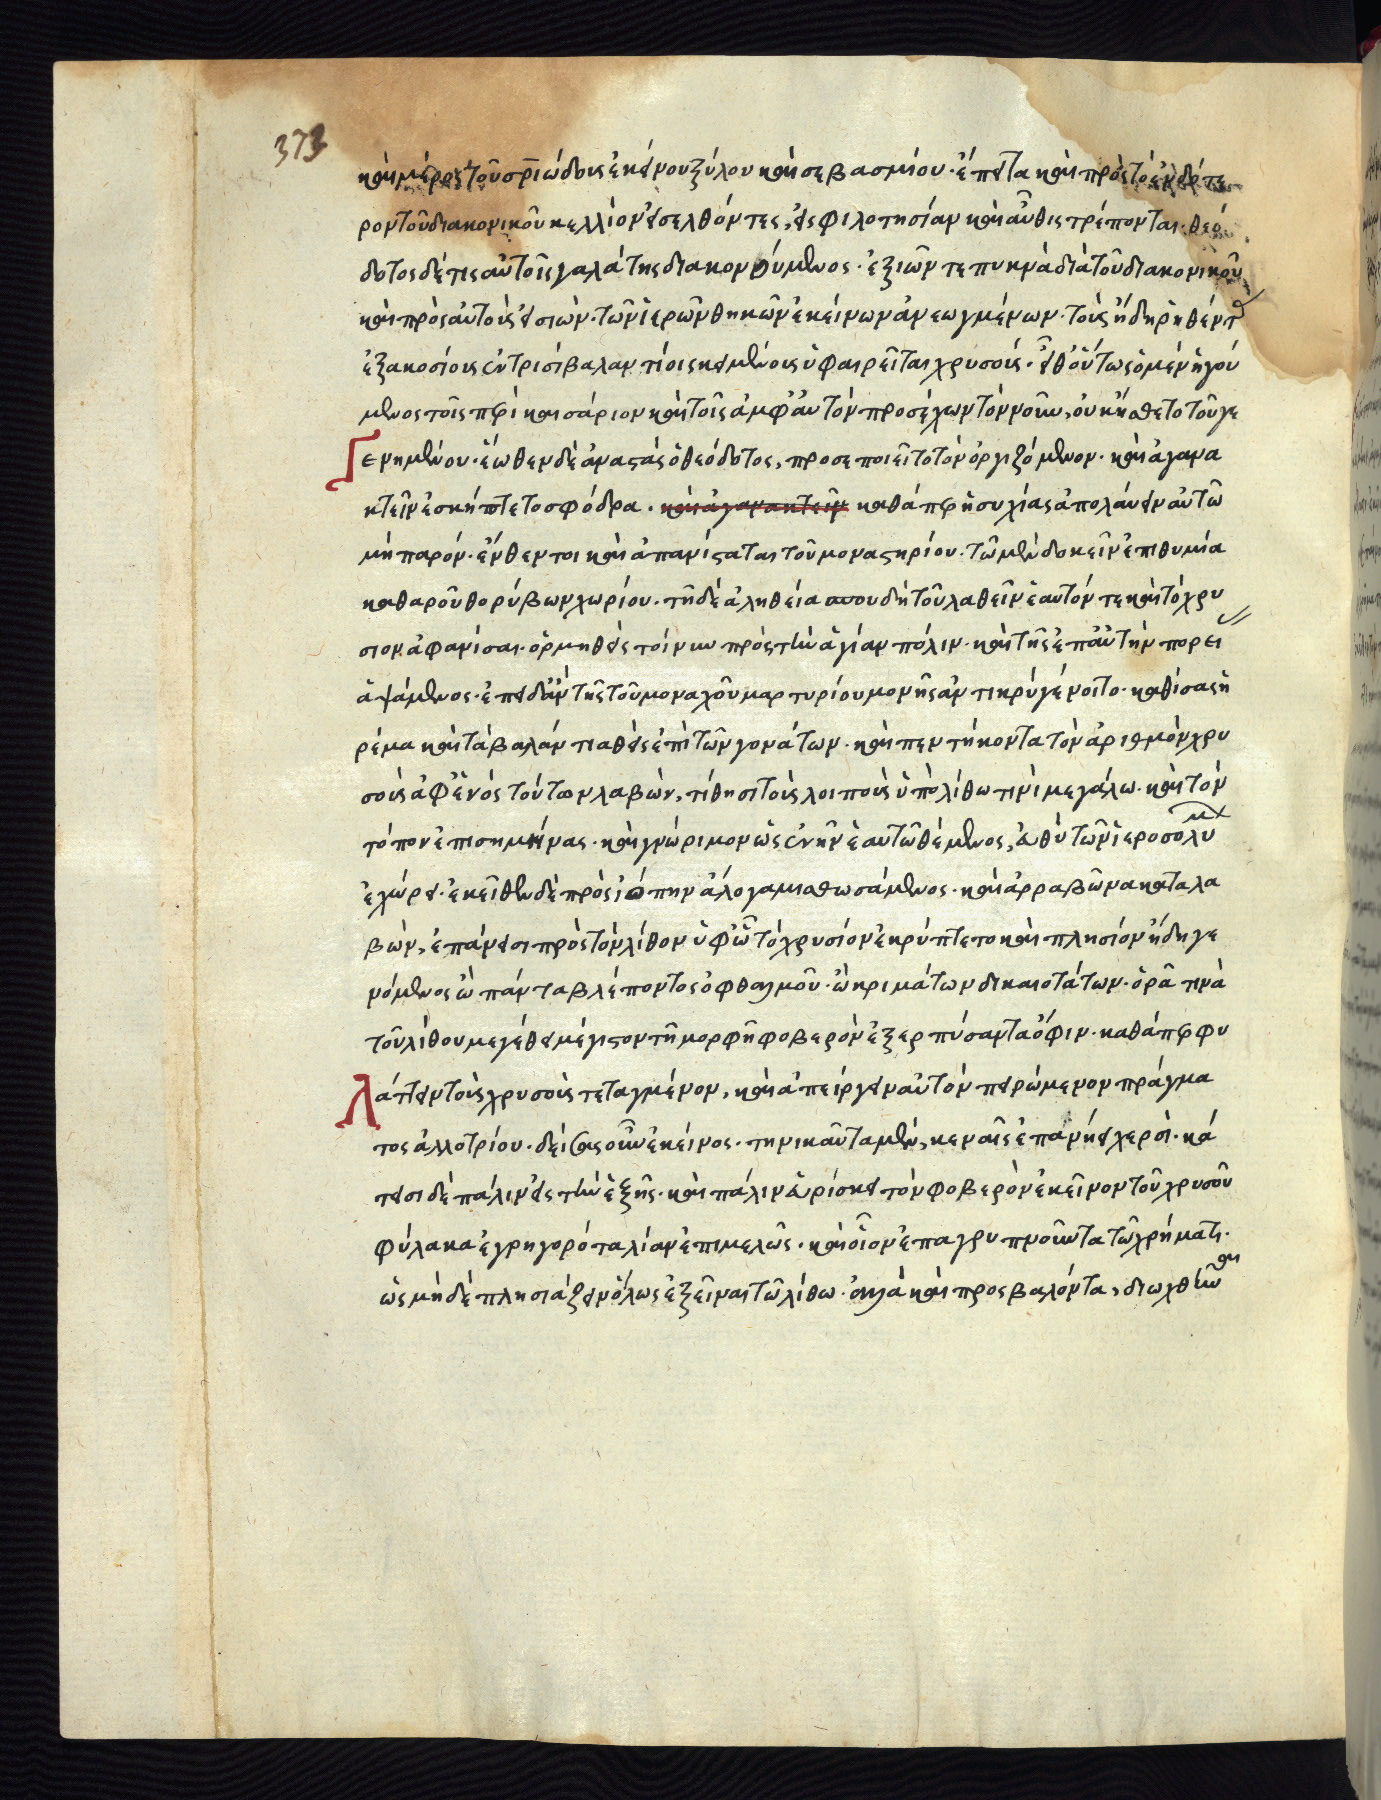 373
καὶ μέρος τοῦ σριώδους ἐκείνου ξύλου καὶ σεβασμίου· ἔπειτα καὶ πρὸς τὸ ἐνδότε
ρον τοῦ διακονικοῦ κελλίον εἰσελθόντες, εἰς φιλοτησίαν καὶ αὖθις τρέπονται· θεό
δοτος δέ τις αὐτοῖς γαλάτης διακονούμενος· ἐξιών τε πυκνὰ διὰ τοῦ διακονικοῦ
καὶ πρὸς αὐτοὺς εἰσιών· τῶν ἱερῶν θηκῶν ἐκείνων ἀνεωγμένων· τοὺς ἤδη ῥηθέντας
ἑξακοσίους ἐν τρισὶ βαλαντίοις κειμένοις ὑφαιρεῖται χρυσούς· εἶθ' οὕτως ὁ μὲν ἡγού
μενος τοῖς περὶ καισάριον καὶ τοῖς ἀμφ' αὐτὸν προσέχων τὸν νοῦν, οὐκ ᾔσθετο τοῦ γε
Γενημένου· ἕωθεν δὲ ἀναστὰς ὁ θεόδοτος, προσεποιεῖτο τὸν ὀργιζόμενον· καὶ ἀγανα
κτεῖν ἐσκήπτετο σφόδρα· καὶ ἀγανακτεῖν καθάπερ ἡσυχίας ἀπολαύειν αὐτῶ
μὴ παρόν· ἔνθεν τοι καὶ ἀπανίσταται τοῦ μοναστηρίου· τῶ μὲν δοκεῖν ἐπιθυμία
καθαροῦ θορύβων χωρίου· τῆ δὲ ἀληθεία σπουδῆ τοῦ λαθεῖν ἑαυτόν τε καὶ τὸ χρυ
σίον ἀφανίσαι· ὁρμηθεὶς τοίνυν πρὸς τὴν ἁγίαν πόλιν· καὶ τῆς ἐπ' αὐτὴν πορείας
ἁψάμενος· ἐπειδὰν τῆς τοῦ μοναχοῦ μαρτυρίου μονῆς ἀντικρὺ γένοιτο· καθίσας ἠ
ρέμα καὶ τὰ βαλάντια θεὶς ἐπὶ τῶν γονάτων· καὶ πεντήκοντα τὸν ἀριθμὸν χρυ
σοὺς ἀφ' ἑνὸς τούτων λαβών, τίθησι τοὺς λοιποὺς ὑπὸ λίθω τινὶ μεγάλω· καὶ τὸν
τόπον ἐπισημήνας· καὶ γνώριμον ὡς ἐνῆν ἑαυτῶ θέμενος, εὐθὺ τῶν ἱεροσολύμων
ἐχώρει· ἐκεῖθεν δὲ πρὸς ἰόπην ἄλογα μισθωσάμενος· καὶ ἀρραβῶνα καταλα
βών, ἐπάνεισι πρὸς τὸν λίθον ὑφ' ὧ τὸ χρυσίον ἐκρύπτετο καὶ πλησίον ἤδη γε
νόμενος ὢ πάντα βλέποντος ὀφθαλμοῦ· ὢ κριμάτων δικαιοτάτων· ὁρᾶ τινὰ
τοῦ λίθου μεγέθει μέγιστον τῆ μορφῆ φοβερὸν ἐξερπύσαντα ὄφιν· καθάπερ φυ
Λάττειν τοὺς χρυσοὺς τεταγμένον, καὶ ἀπείργειν αὐτὸν πειρώμενον πράγμα
τος ἀλλοτρίου· δείσας οὖν ἐκεῖνος· τηνικαῦτα μὲν, κεναῖς ἐπανήει χερσὶ· κά
τεισι δὲ πάλιν εἰς τὴν ἑξῆς· καὶ πάλιν εὑρίσκει τὸν φοβερὸν ἐκεῖνον τοῦ χρυσοῦ
φύλακα ἐγρηγορότα λίαν ἐπιμελῶς· καὶ οἷον ἐπαγρυπνοῦντα τῶ χρήματι·
ὡς μηδὲ πλησιάζειν ὅλως ἐξεῖναι τῶ λίθω· ἀλλὰ καὶ προσβαλόντα, διωχθῆναι